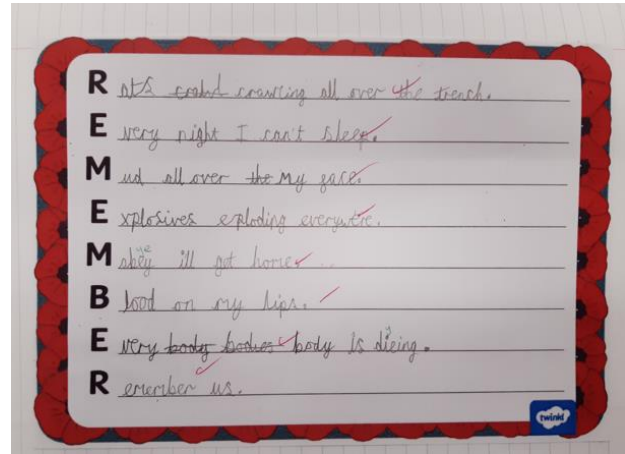 Rats crawling all over the trench.
Every night I can't sleep.
Mud all over the My face.
Explosives exploding everywere.
Mabey ill get home...
Blood on my lips.
Every body bodies body Is dieing.
Remember us.
twinkl